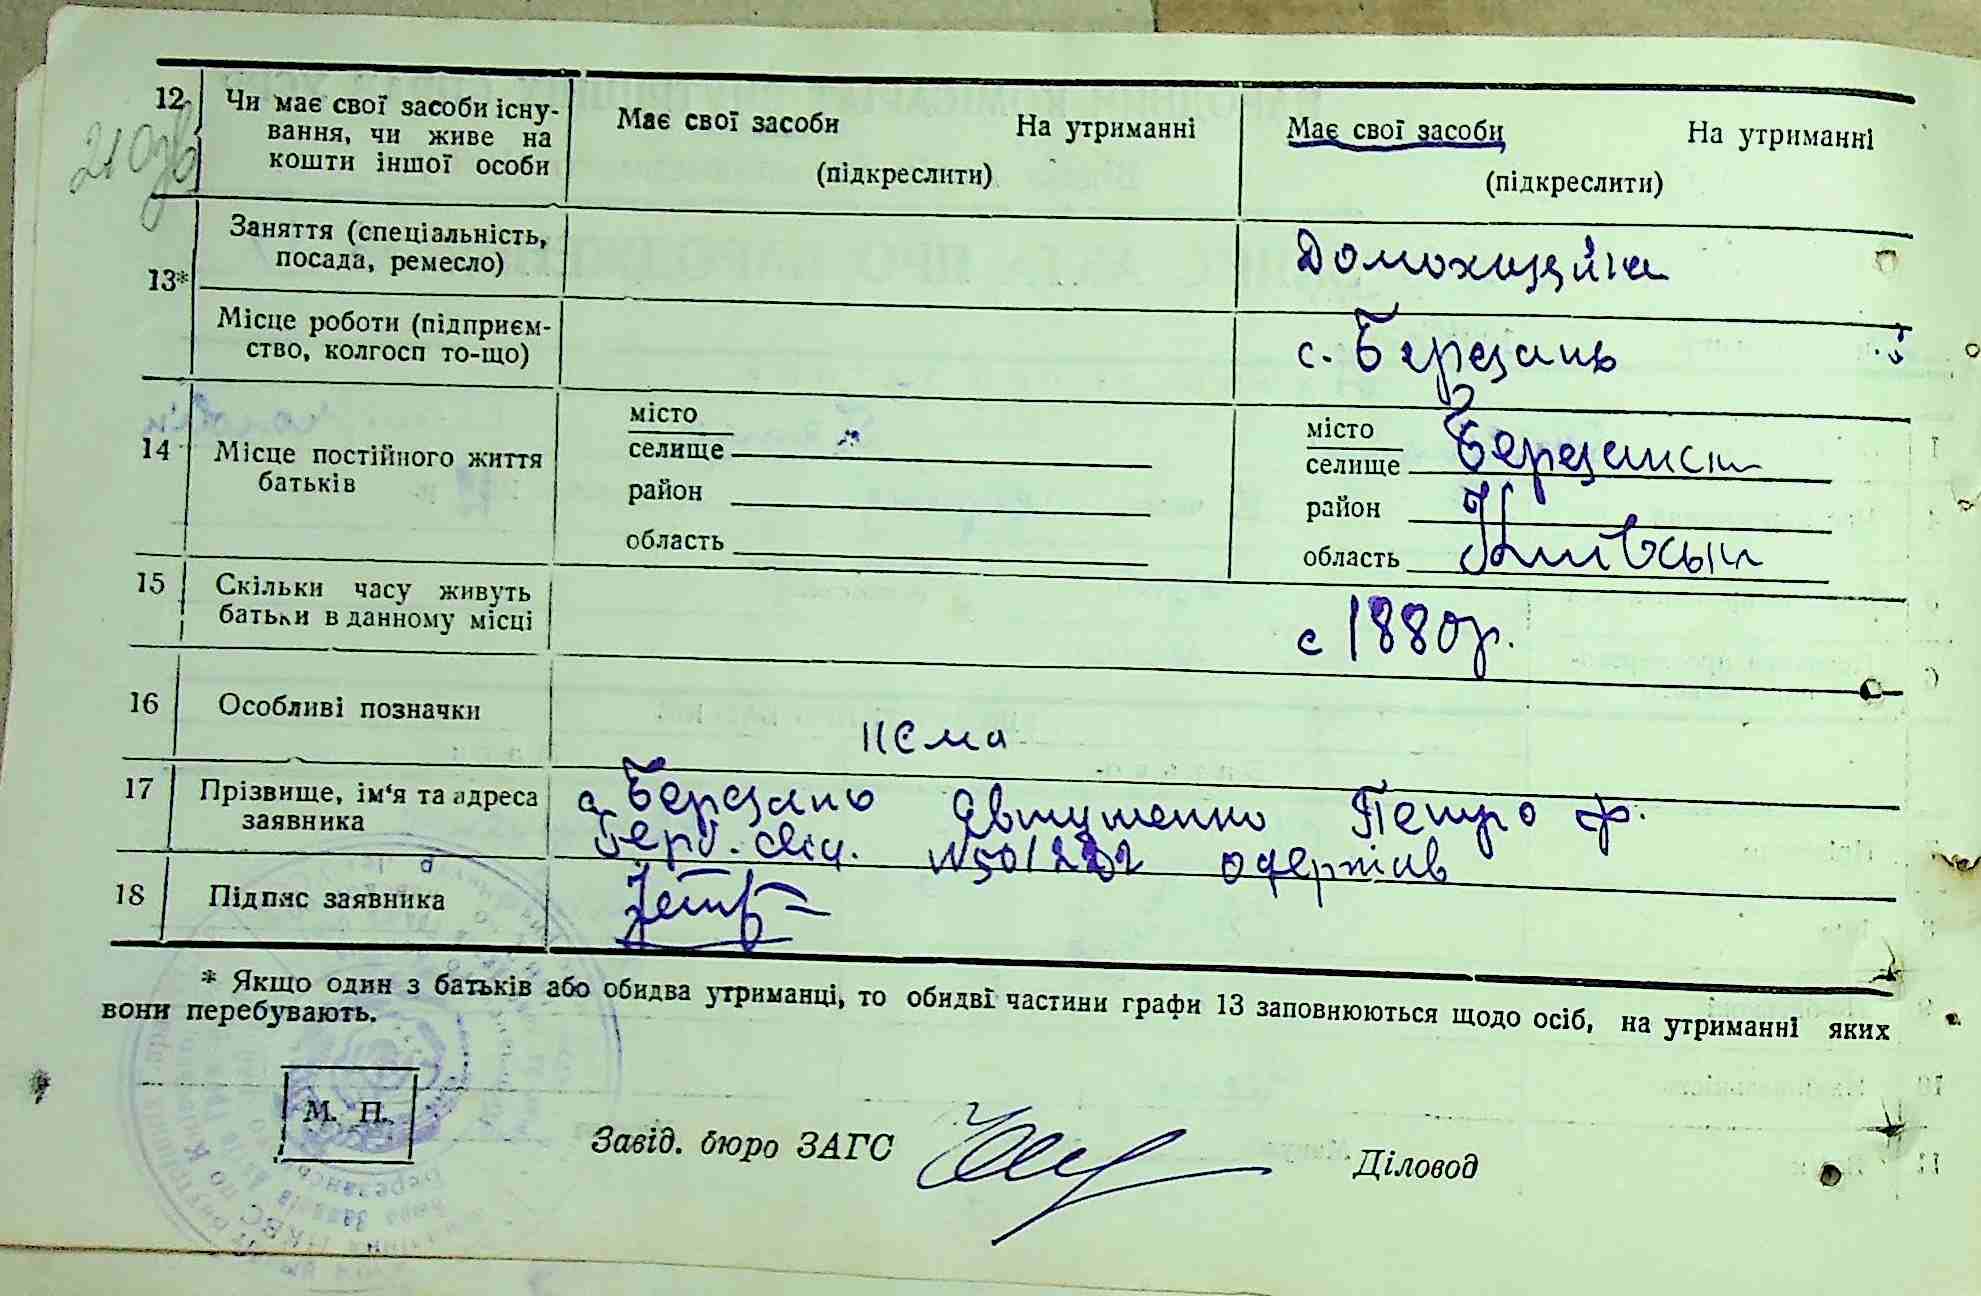 12 Чи має свої засоби існу-
вання, чи живе на
кошти іншої особи
Має свої засоби На утриманні
(підкреслити)
Має свої засоби На утриманні
(підкреслити)
13* Заняття (спеціальність,
посада, ремесло)
Домохазяйка
Місце роботи (підприєм-
ство, колгосп то-що)
с. Березань
14 Місце постійного життя
батьків
місто
селище
район
область
місто
селище Березанськ
район
область Київськ
15 Скільки часу живуть
батьки в данному місці
с 1880р.
16 Особливі позначки
нема
17 Прізвище, ім'я та адреса
заявника
с. Березань Явтушенко Петро Ф.
одержив
18 Підпис заявника
* Якщо один з батьків або обидва утриманці, то обидві частини графи 13 заповнюються щодо осіб, на утриманні яких
вони перебувають.
М. П.
Завід. бюро ЗАГС
Діловод